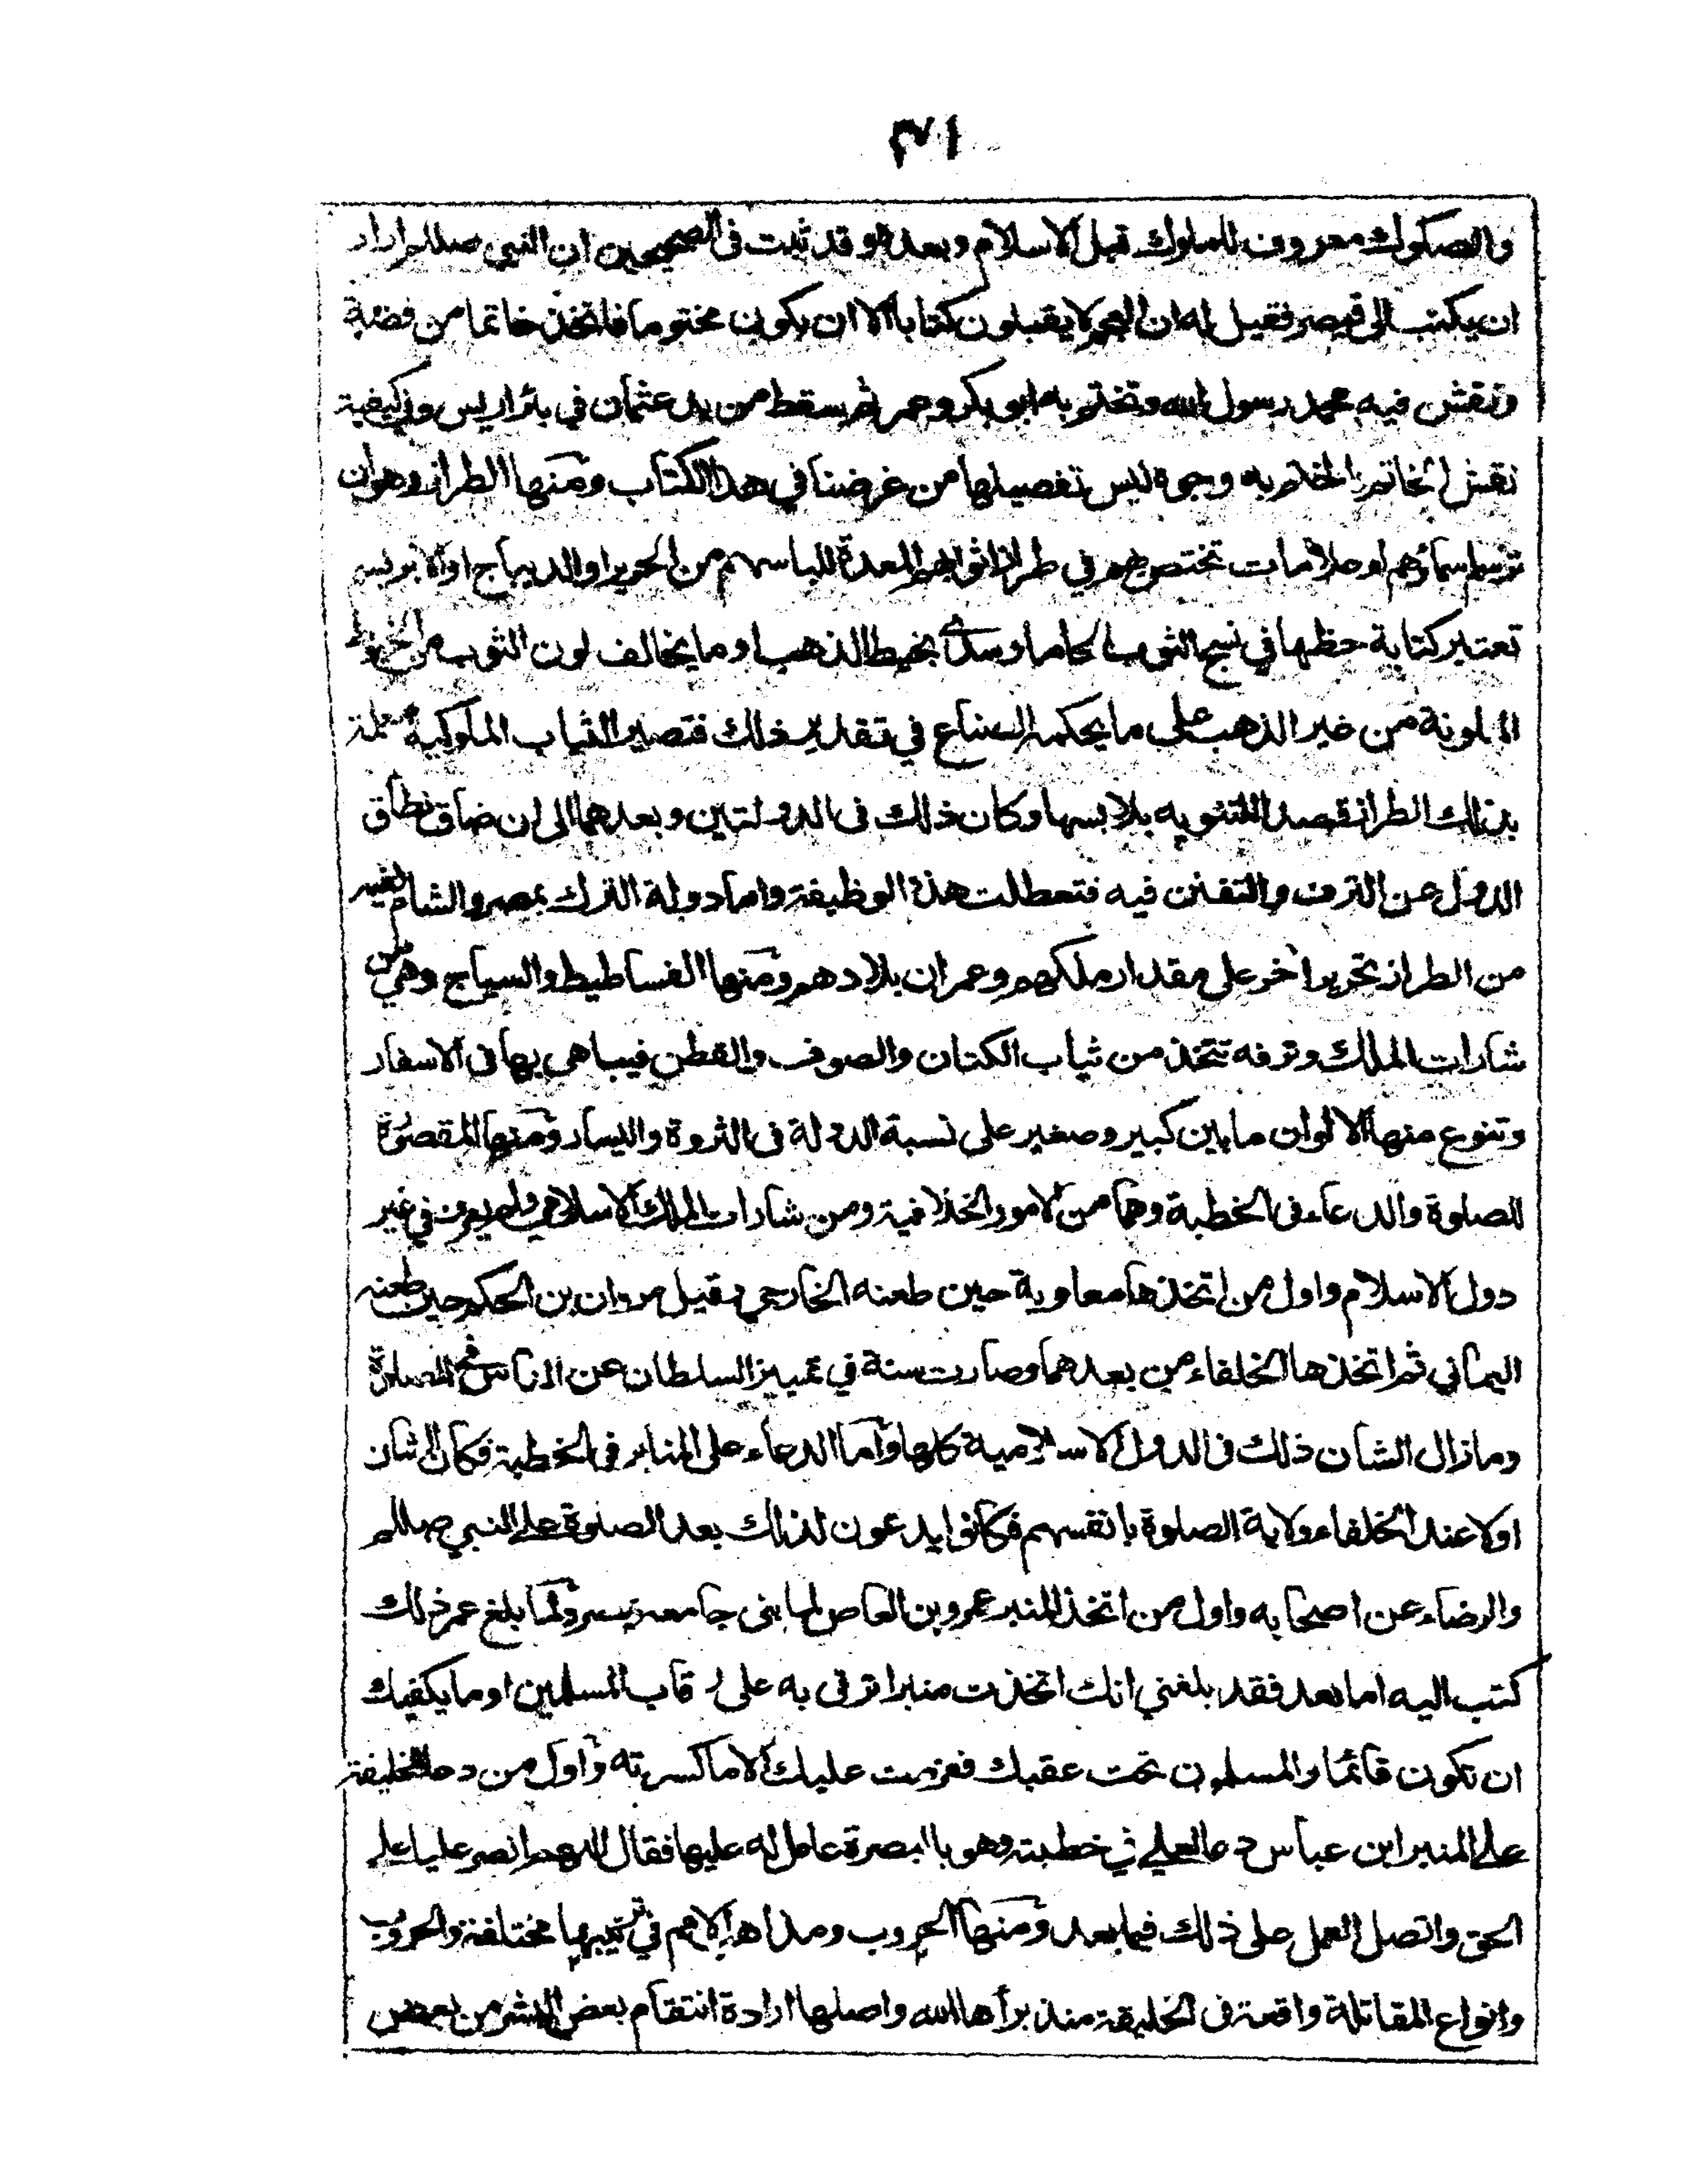 ٣١
والصكوك معروف للملوك قبل الاسلام وبعده وقد ثبت فى الصحيحين ان النبى صللم اراد
ان يكتب الى قيصر فقيل له ان العجم لا يقبلون كتابا الا ان يكون مختوما فاتخذ خاتما من فضة
ونقش فيه محمد رسول الله وتختم به ابو بكر وعمر ثم سقط من يد عثمان في بئر اريس وفي كيفية
نقش الخاتم والختم به وجوه ليس تفصيلها من غرضنا في هذا الكتاب ومنها الطراز وهو ان
ترسم اسمائهم او علامات تختص بهم في طراز اثوابهم المعدة للباسهم من الحرير او الديباج او الابريسم
تعتبر كتابة خطها في نسج الثوب الحاما وسدى بخيط الذهب او ما يخالف لون الثوب من الخيوط
الملونة من غير الذهب على ما يحكمه الصناع في تقدير ذلك فتصير الثياب الملوكية معلمة
بذلك الطراز قصدا للتنويه بلابسها وكان ذلك فى الدولتين وبعدهما الى ان ضاق نطاق
الدول عن الترف والتفنن فيه فتعطلت هذه الوظيفة واما دولة الترك بمصر والشام
من الطراز تحريرا آخر على مقدار ملكهم وعمران بلادهم ومنها الفساطيط والسياج وهي من
شارات الملك وترفه تتخذ من ثياب الكتان والصوف والقطن فيباهى بها فى الاسفار
وتنوع منها الالوان ما بين كبير وصغير على نسبة الدولة فى الثروة واليسار ومنها المقصورة
للصلوة والدعاء فى الخطبة وهما من الامور الخلافية ومن شارات الملك الاسلامي ولم يعرف في غير
دول الاسلام واول من اتخذها معاوية حين طعنه الخارجي وقيل مروان بن الحكم حين طعنه
اليماني ثم اتخذها الخلفاء من بعدهما وصارت سنة في تمييز السلطان عن الناس في الصلوة
وما زال الشان ذلك فى الدول الاسلامية كلها واما الدعاء على المنابر فى الخطبة فكان الشان
اولا عند الخلفاء ولاية الصلوة بانفسهم فكانوا يدعون لذلك بعد الصلوة على النبي صللم
والرضاء عن اصحابه واول من اتخذ المنبر عمرو بن العاص لما بنى جامعه بمصر ولما بلغ عمر ذلك
كتب اليه اما بعد فقد بلغني انك اتخذت منبرا ترقى به على رقاب المسلمين او ما يكفيك
ان تكون قائما والمسلمون تحت عقبك فعزمت عليك الا ما كسرته واول من دعا للخليفة
على المنبر ابن عباس دعا لعلي في خطبته وهو بالبصرة عامل له عليها فقال اللهم انصر عليا على
الحق واتصل العمل على ذلك فيما بعد ومنها الحروب ومذاهب الامم في ترتيبها مختلفة والحروب
وانواع المقاتلة واقعة فى الخليقة منذ برأها الله واصلها ارادة انتقام بعض البشر من بعض